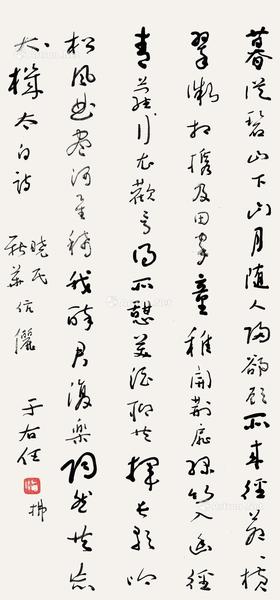 暮從碧山下山月隨人歸卻顧所來徑蒼蒼橫
翠微相攜及田家童稚開荊扉綠竹入幽徑
青蘿行衣歡言得所憩美酒聊共揮長歌吟
松風曲盡河星稀我醉君復樂陶然共忘
機太白詩
曉民
伉儷
于右任
拂